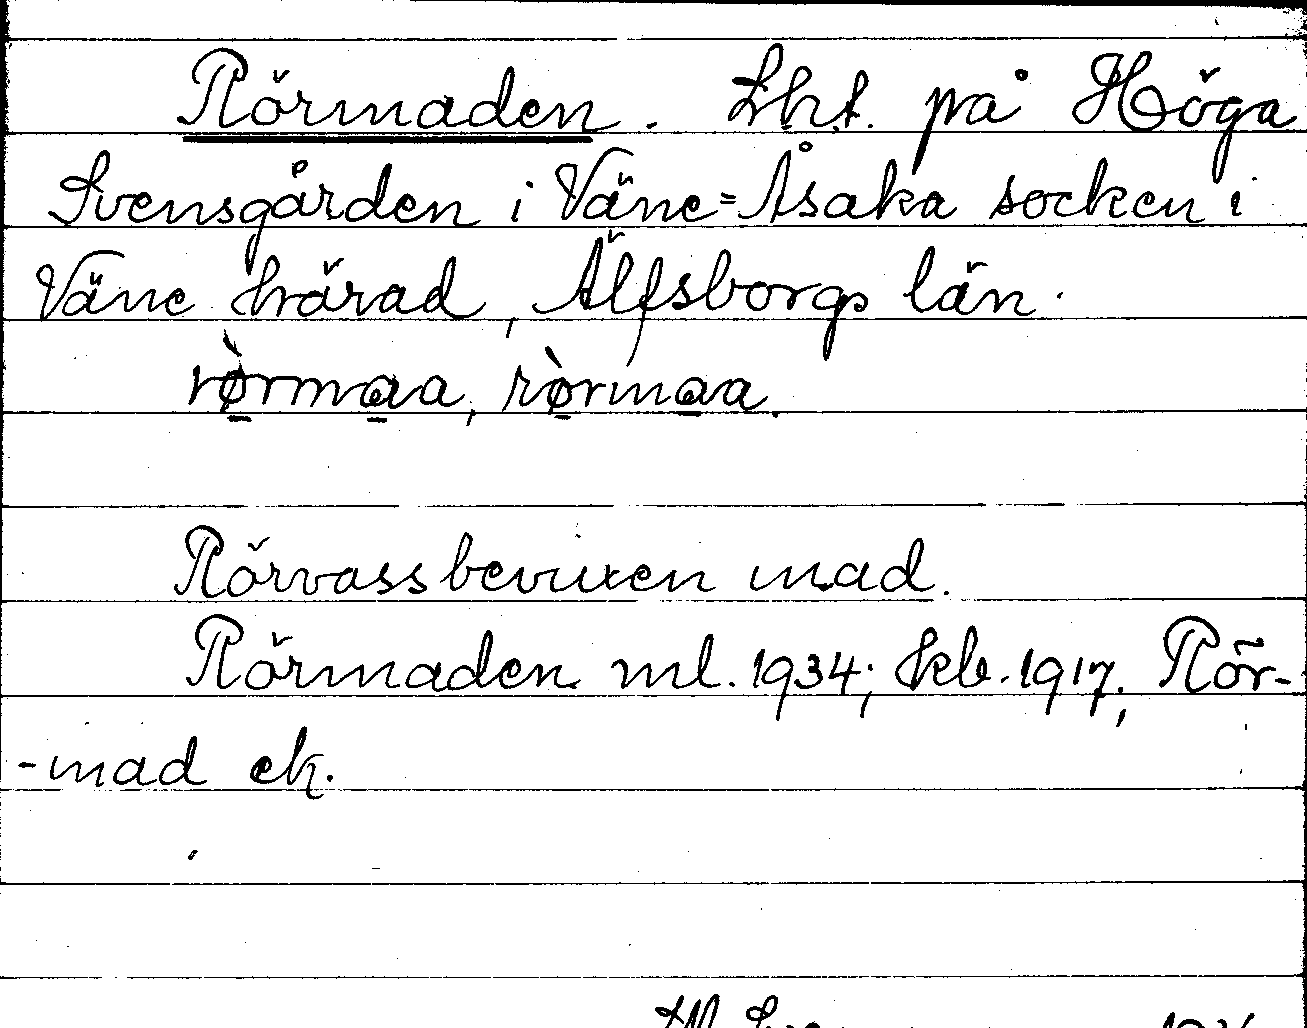 Rörmaden. Lht. på Höga
Svensgården i Väne=Åsaka socken i
Väne härad, Älfsborgs län.
rø̀rmaa, rø̀rmaa.
Rörvassbevuxen mad.
Rörmaden ml. 1934; kb. 1917; Rör-
-mad ek.